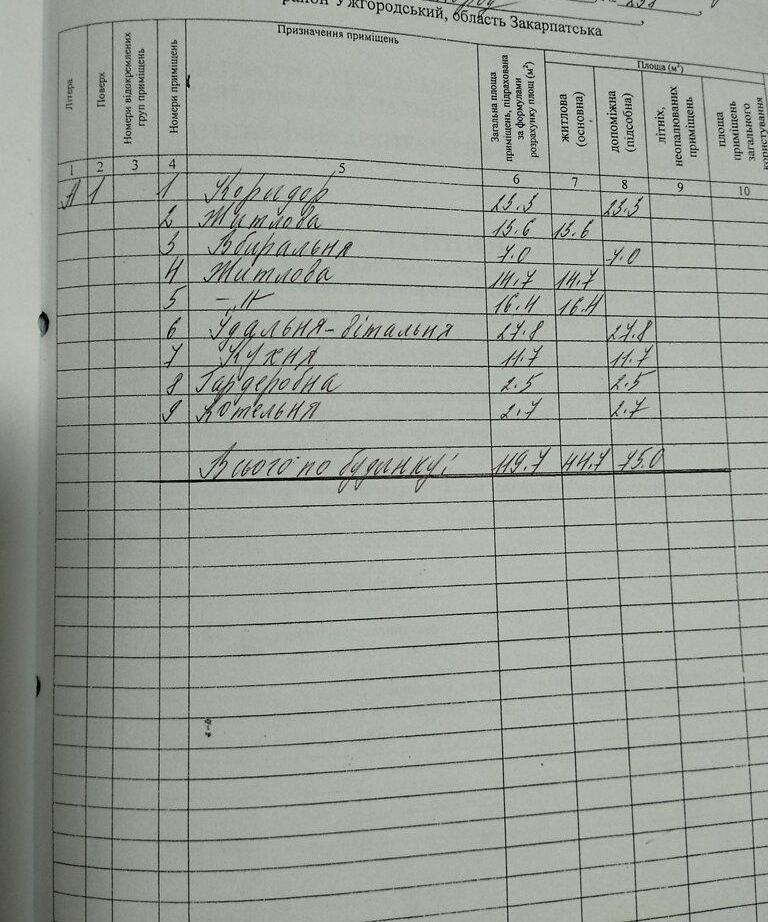 район Ужгородський, область Закарпатська
Літера
Поверх
Номери відокремлених груп приміщень
Номери приміщень
Призначення приміщень
Загальна площа приміщень, підрахована за формулами розрахунку площ (м²)
Площа (м²)
житлова (основна)
допоміжна (підсобна)
літніх, неопалюваних приміщень
площа приміщень загального користування
1 2 3 4 5 6 7 8 9 10
А 1 1 Коридор 23.3 23.3
2 Житлова 13.6 13.6
3 Вбиральня 7.0 7.0
4 Житлова 14.7 14.7
5 -〃- 16.4 16.4
6 Їдальня-вітальня 27.8 27.8
7 Кухня 11.7 11.7
8 Гардеробна 2.5 2.5
9 Котельня 2.7 2.7
Всього по будинку: 119.7 44.7 75.0